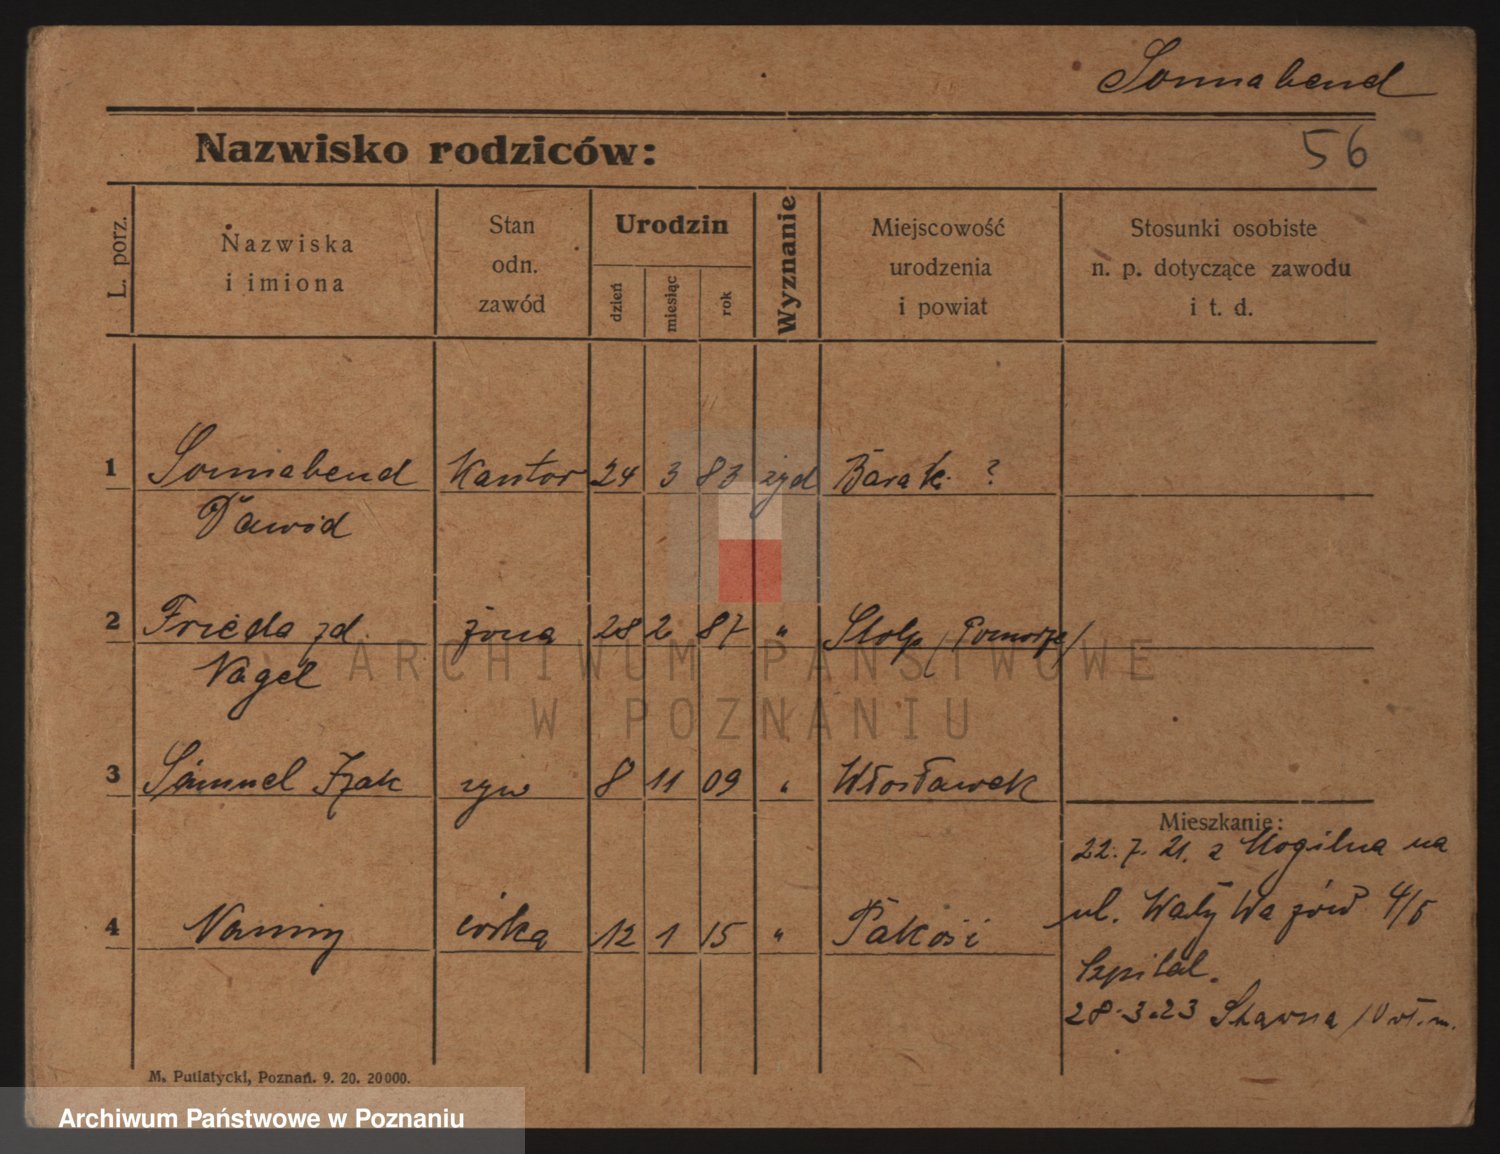 Sonnabend
56
Nazwisko rodziców:
L. porz.
Nazwiska
i imiona
Stan
odn.
zawód
Urodzin
dzień
miesiąc
rok
Wyznanie
Miejscowość
urodzenia
i powiat
Stosunki osobiste
n. p. dotyczące zawodu
i t. d.
1 Sonnabend Kantor 24 3 83 żyd Barak ?
Dawid
2 Frieda zd. żona 28 2 87 " Stolp /Pomorze/
Nagel
3 Samuel Izak syn 8 11 09 " Włocławek
Mieszkanie:
22. 7. 21. z Mogilna na
ul. Wały Wazów 4/5
4 Nanny córka 12 1 15 " Pakość
Szpital.
28.3.23 Stawna
M. Putiatycki, Poznań. 9. 20. 20000.
ARCHIWUM PAŃSTWOWE
W POZNANIU
Archiwum Państwowe w Poznaniu